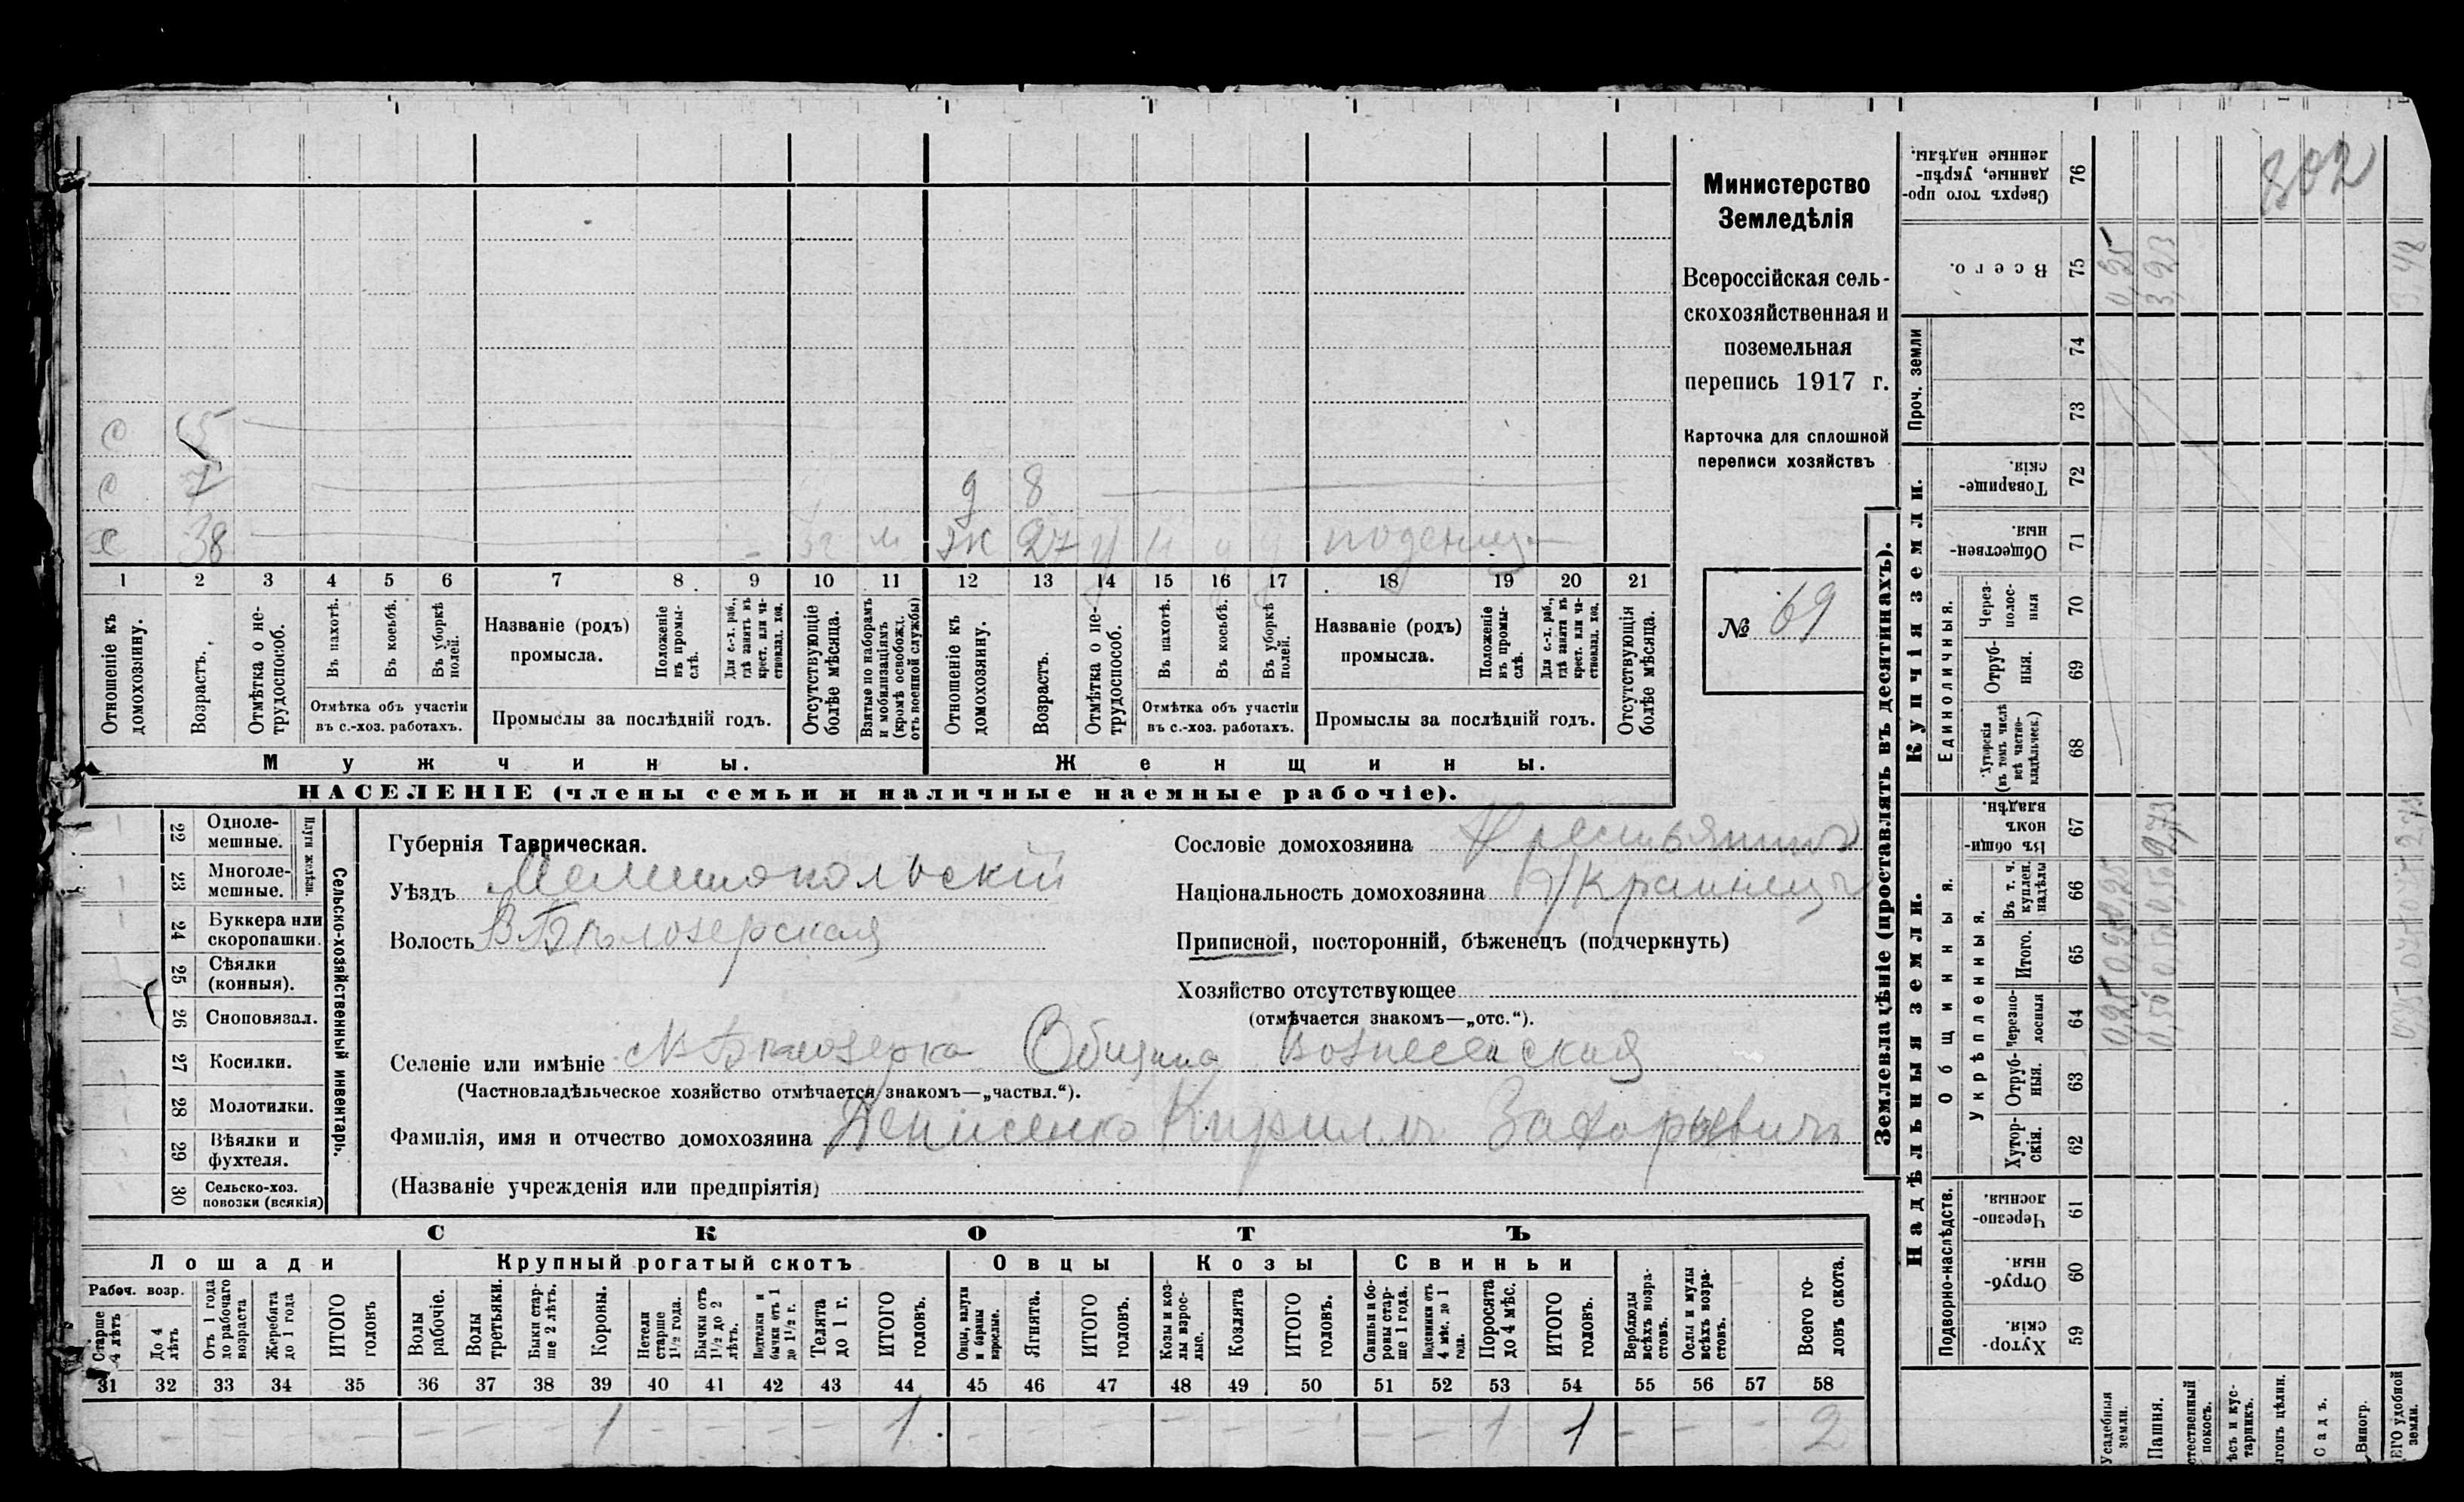 Министерство
Земледѣлія
Всероссійская сель-
скохозяйственная и
поземельная
перепись 1917 г.
Карточка для сплошной
переписи хозяйствъ
№ 69
802
с 5
с 7 д 8
с 38 ж 27
1 2 3 4 5 6 7 8 9 10 11 12 13 14 15 16 17 18 19 20 21
Отношеніе къ домохозяину.
Возрастъ.
Отмѣтка о не-трудоспособ.
Въ пахотѣ.
Въ косьбѣ.
Въ уборкѣ полей.
Отмѣтка объ участіи
въ с.-хоз. работахъ.
Названіе (родъ)
промысла.
Положеніе въ промы-слѣ.
Для с.-х. раб., гдѣ занятъ въ крест. или ча-стновлад. хоз.
Промыслы за послѣдній годъ.
Отсутствующіе болѣе мѣсяца.
Взятые по наборамъ и мобилизаціямъ (кромѣ освобожд. отъ военной службы)
Отношеніе къ домохозяину.
Возрастъ.
Отмѣтка о не-трудоспособ.
Въ пахотѣ.
Въ косьбѣ.
Въ уборкѣ полей.
Отмѣтка объ участіи
въ с.-хоз. работахъ.
Названіе (родъ)
промысла.
Положеніе въ промы-слѣ.
Для с.-х. раб., гдѣ занята въ крест. или ча-стновлад. хоз.
Промыслы за послѣдній годъ.
Отсутствующія болѣе мѣсяца.
Мужчины.
Женщины.
НАСЕЛЕНІЕ (члены семьи и наличные наемные рабочіе).
Сельско-хозяйственный инвентарь.
Плуги желѣзн.
22 Одноле-мешные.
23 Многоле-мешные.
24 Буккера или скоропашки.
25 Сѣялки (конныя).
26 Сноповязал.
27 Косилки.
28 Молотилки.
29 Вѣялки и фухтеля.
30 Сельско-хоз. повозки (всякія)
Губернія Таврическая.
Уѣздъ Мелитопольскій
Волость В Бѣлозерская
Сословіе домохозяина Крестьянинъ
Національность домохозяина Украинецъ
Приписной, посторонній, бѣженецъ (подчеркнуть)
Хозяйство отсутствующее
(отмѣчается знакомъ—„отс.“).
Селеніе или имѣніе Бѣлозерка Община Вознесенская
(Частновладѣльческое хозяйство отмѣчается знакомъ—„частвл.“).
Фамилія, имя и отчество домохозяина Денисенко Кириллъ Захарьевичъ
(Названіе учрежденія или предпріятія)
СКОТЪ
Лошади
Крупный рогатый скотъ
Овцы
Козы
Свиньи
Рабоч. возр.
Старше 4 лѣтъ
До 4 лѣтъ
Отъ 1 года до рабочаго возраста
Жеребята до 1 года
ИТОГО головъ
Волы рабочіе.
Волы третьяки.
Быки стар-ше 2 лѣтъ.
Коровы.
Нетели старше 1½ года.
Бычки отъ 1½ до 2 лѣтъ.
Подтелки и бычки отъ 1 до 1½ г.
Телята до 1 г.
ИТОГО головъ.
Овцы, валухи и бараны взрослые.
Ягнята.
ИТОГО головъ.
Козы и коз-лы взрос-лые.
Козлята
ИТОГО головъ.
Свиньи и бо-ровы стар-ше 1 года.
Подсвинки отъ 4 мѣс. до 1 года.
Поросята до 4 мѣс.
ИТОГО головъ.
Верблюды всѣхъ возра-стовъ.
Ослы и мулы всѣхъ возра-стовъ.
Всего го-ловъ скота.
31 32 33 34 35 36 37 38 39 40 41 42 43 44 45 46 47 48 49 50 51 52 53 54 55 56 57 58
– – – – – – – – 1 – – – – 1 – – – – – – – – 1 1 – – – 2
Землевладѣніе (проставлять въ десятинахъ).
Сверхъ того про-данные, укрѣп-ленные надѣлы. 76
Всего. 75 0,25 3,23
Проч. земли 74
73
Купчія земли.
Товарище-скія. 72
Обществен-ныя. 71
Единоличныя.
Через-полос-ныя 70
Отруб-ныя. 69
Хуторскія (въ томъ числѣ всѣ частно-владѣльческ.) 68
Надѣльныя земли.
Общинныя.
Въ общи-номъ владѣн. 67 2,73
Укрѣпленныя.
Въ т. ч. куплен. надѣлы 66 0,25 0,50
Итого. 65 0,25 0,50
Черезпо-лосныя 64 0,25 0,50
Отруб-ныя. 63
Хутор-скія. 62
Подворно-наслѣдств.
Черезпо-лосныя. 61
Отруб-ныя. 60
Хутор-скія. 59
Усадебныя земли.
Пашня.
тественный покосъ.
ѣсъ и кус-тарникъ.
гонъ цѣлин.
Садъ.
Виногр.
ЕГО удобной земли.